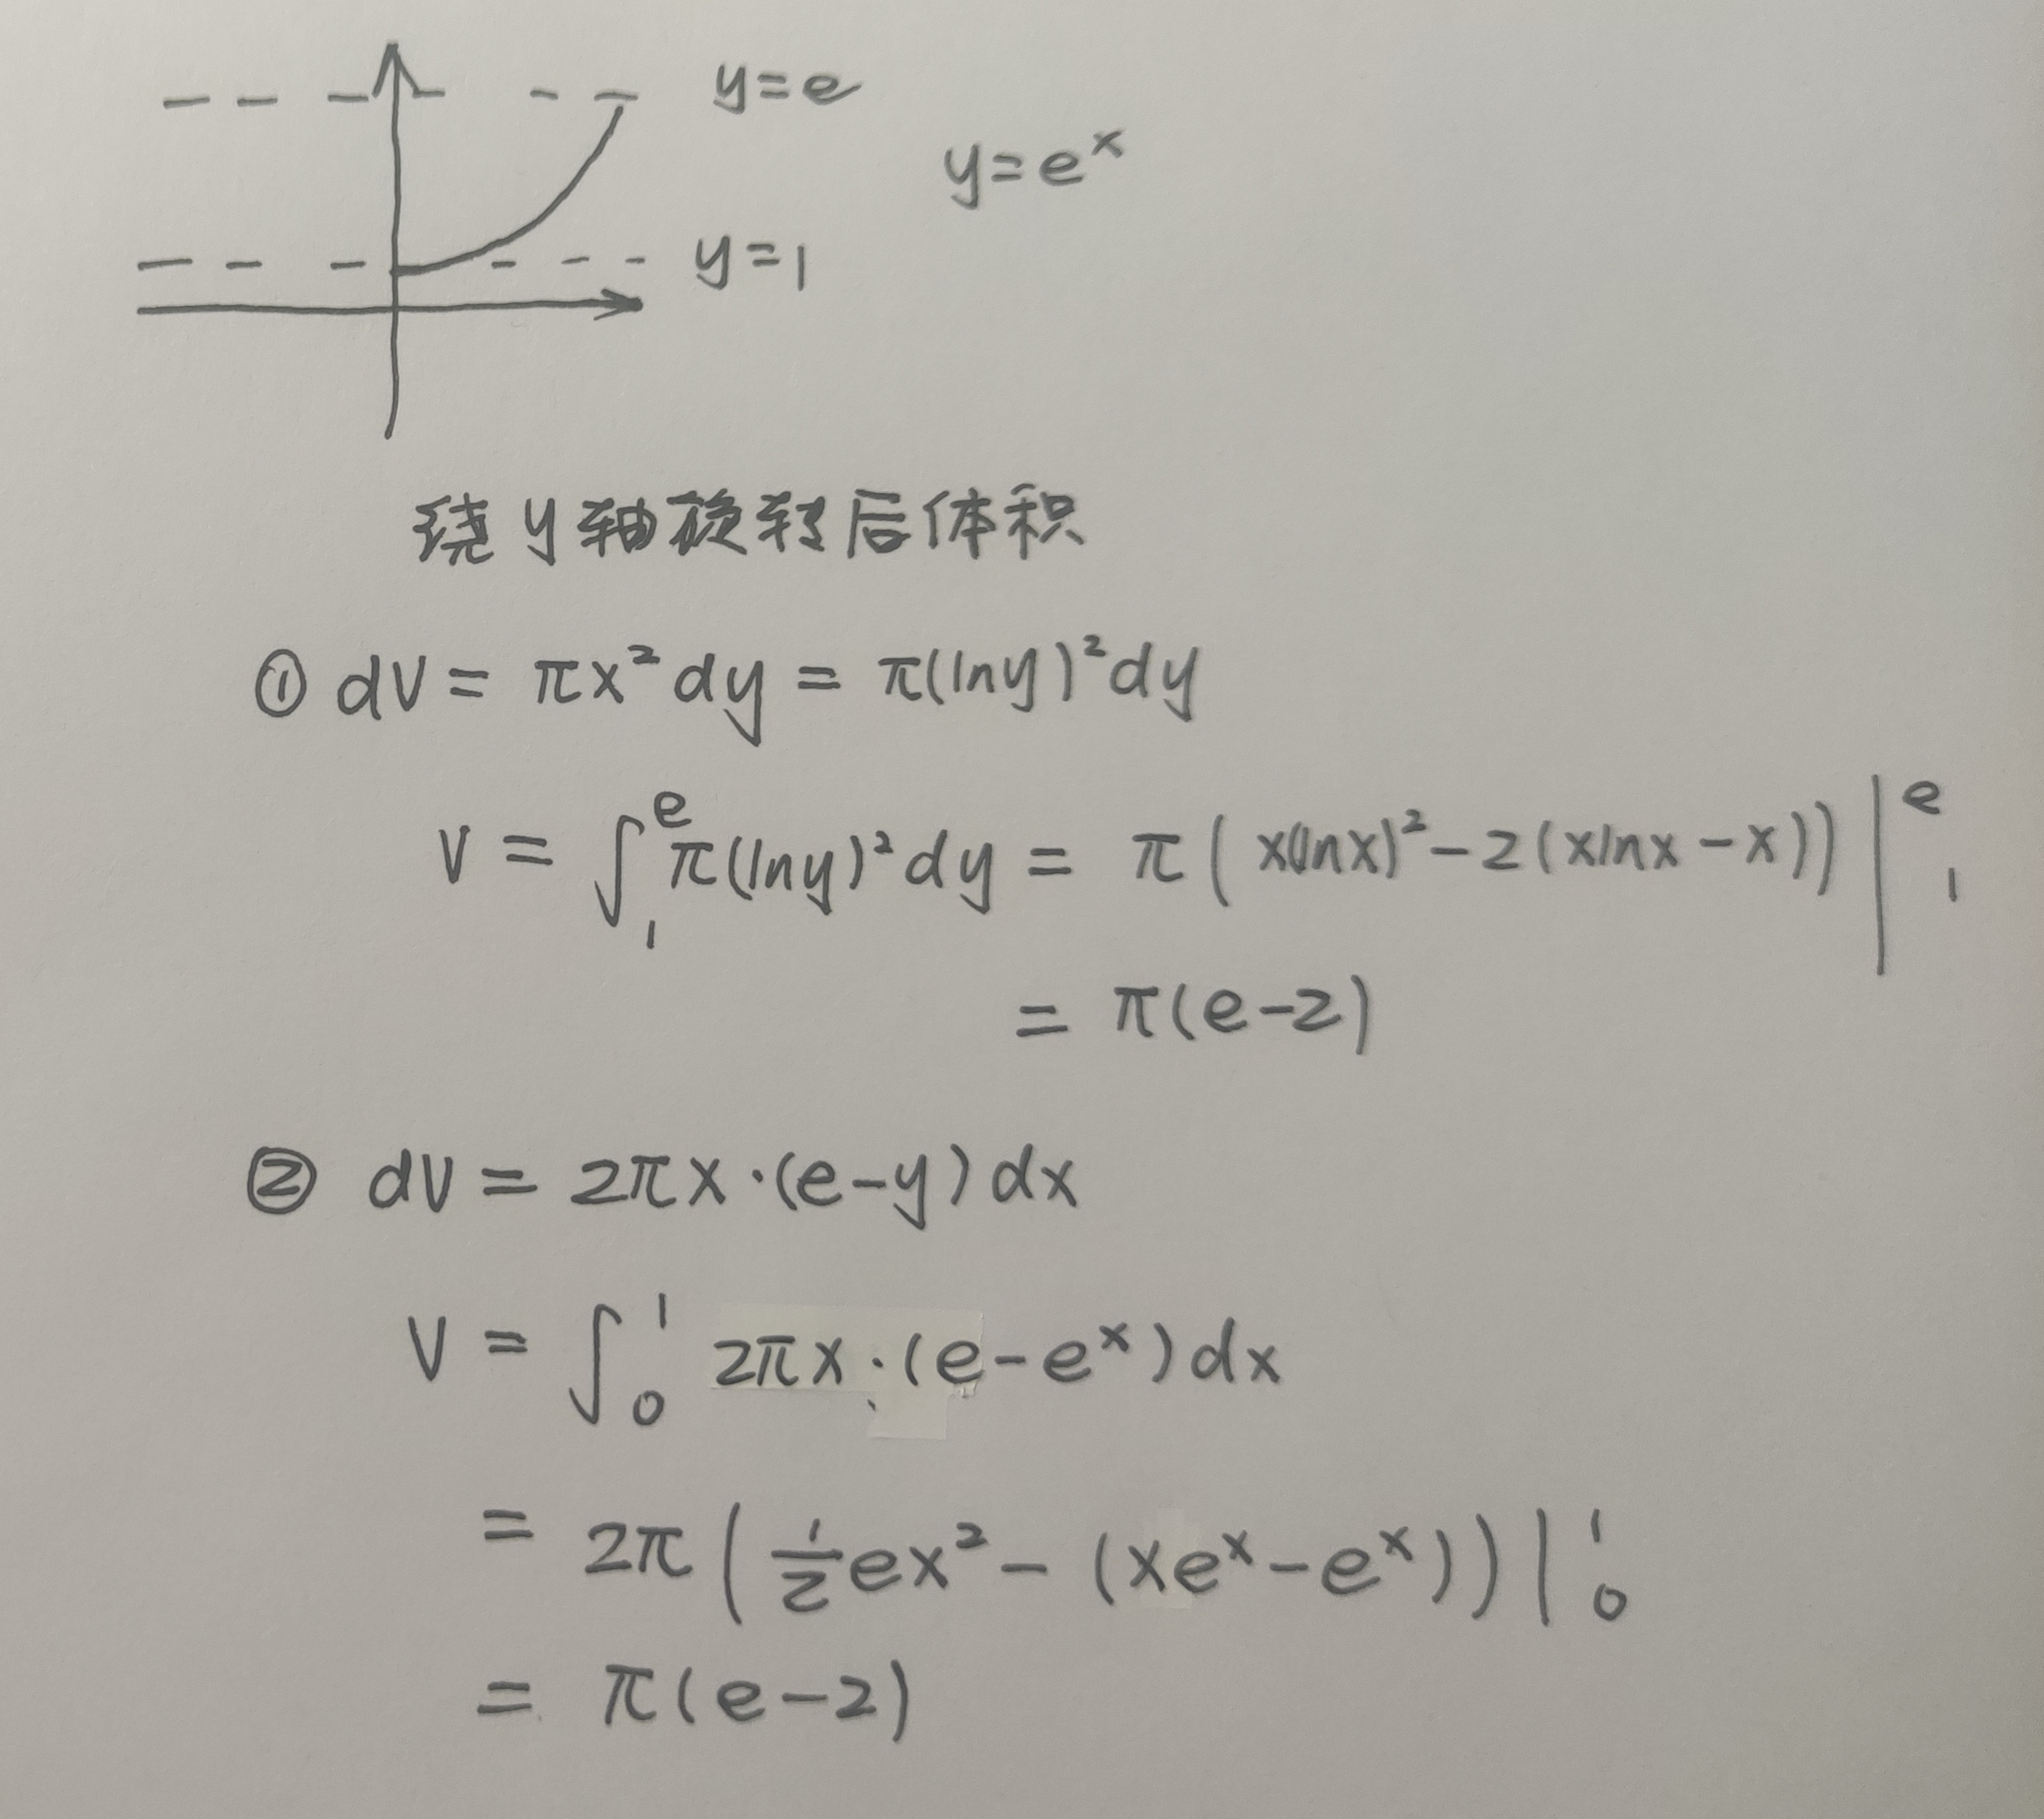 y=e
y=eˣ
y=1
绕y轴旋转后体积
① dV = πx²dy = π(lny)²dy
V = ∫₁ᵉ π(lny)²dy = π(x(lnx)²-2(xlnx-x))|₁ᵉ
= π(e-2)
② dV = 2πx·(e-y)dx
V = ∫₀¹ 2πx·(e-eˣ)dx
= 2π(½ex²-(xeˣ-eˣ))|₀¹
= π(e-2)